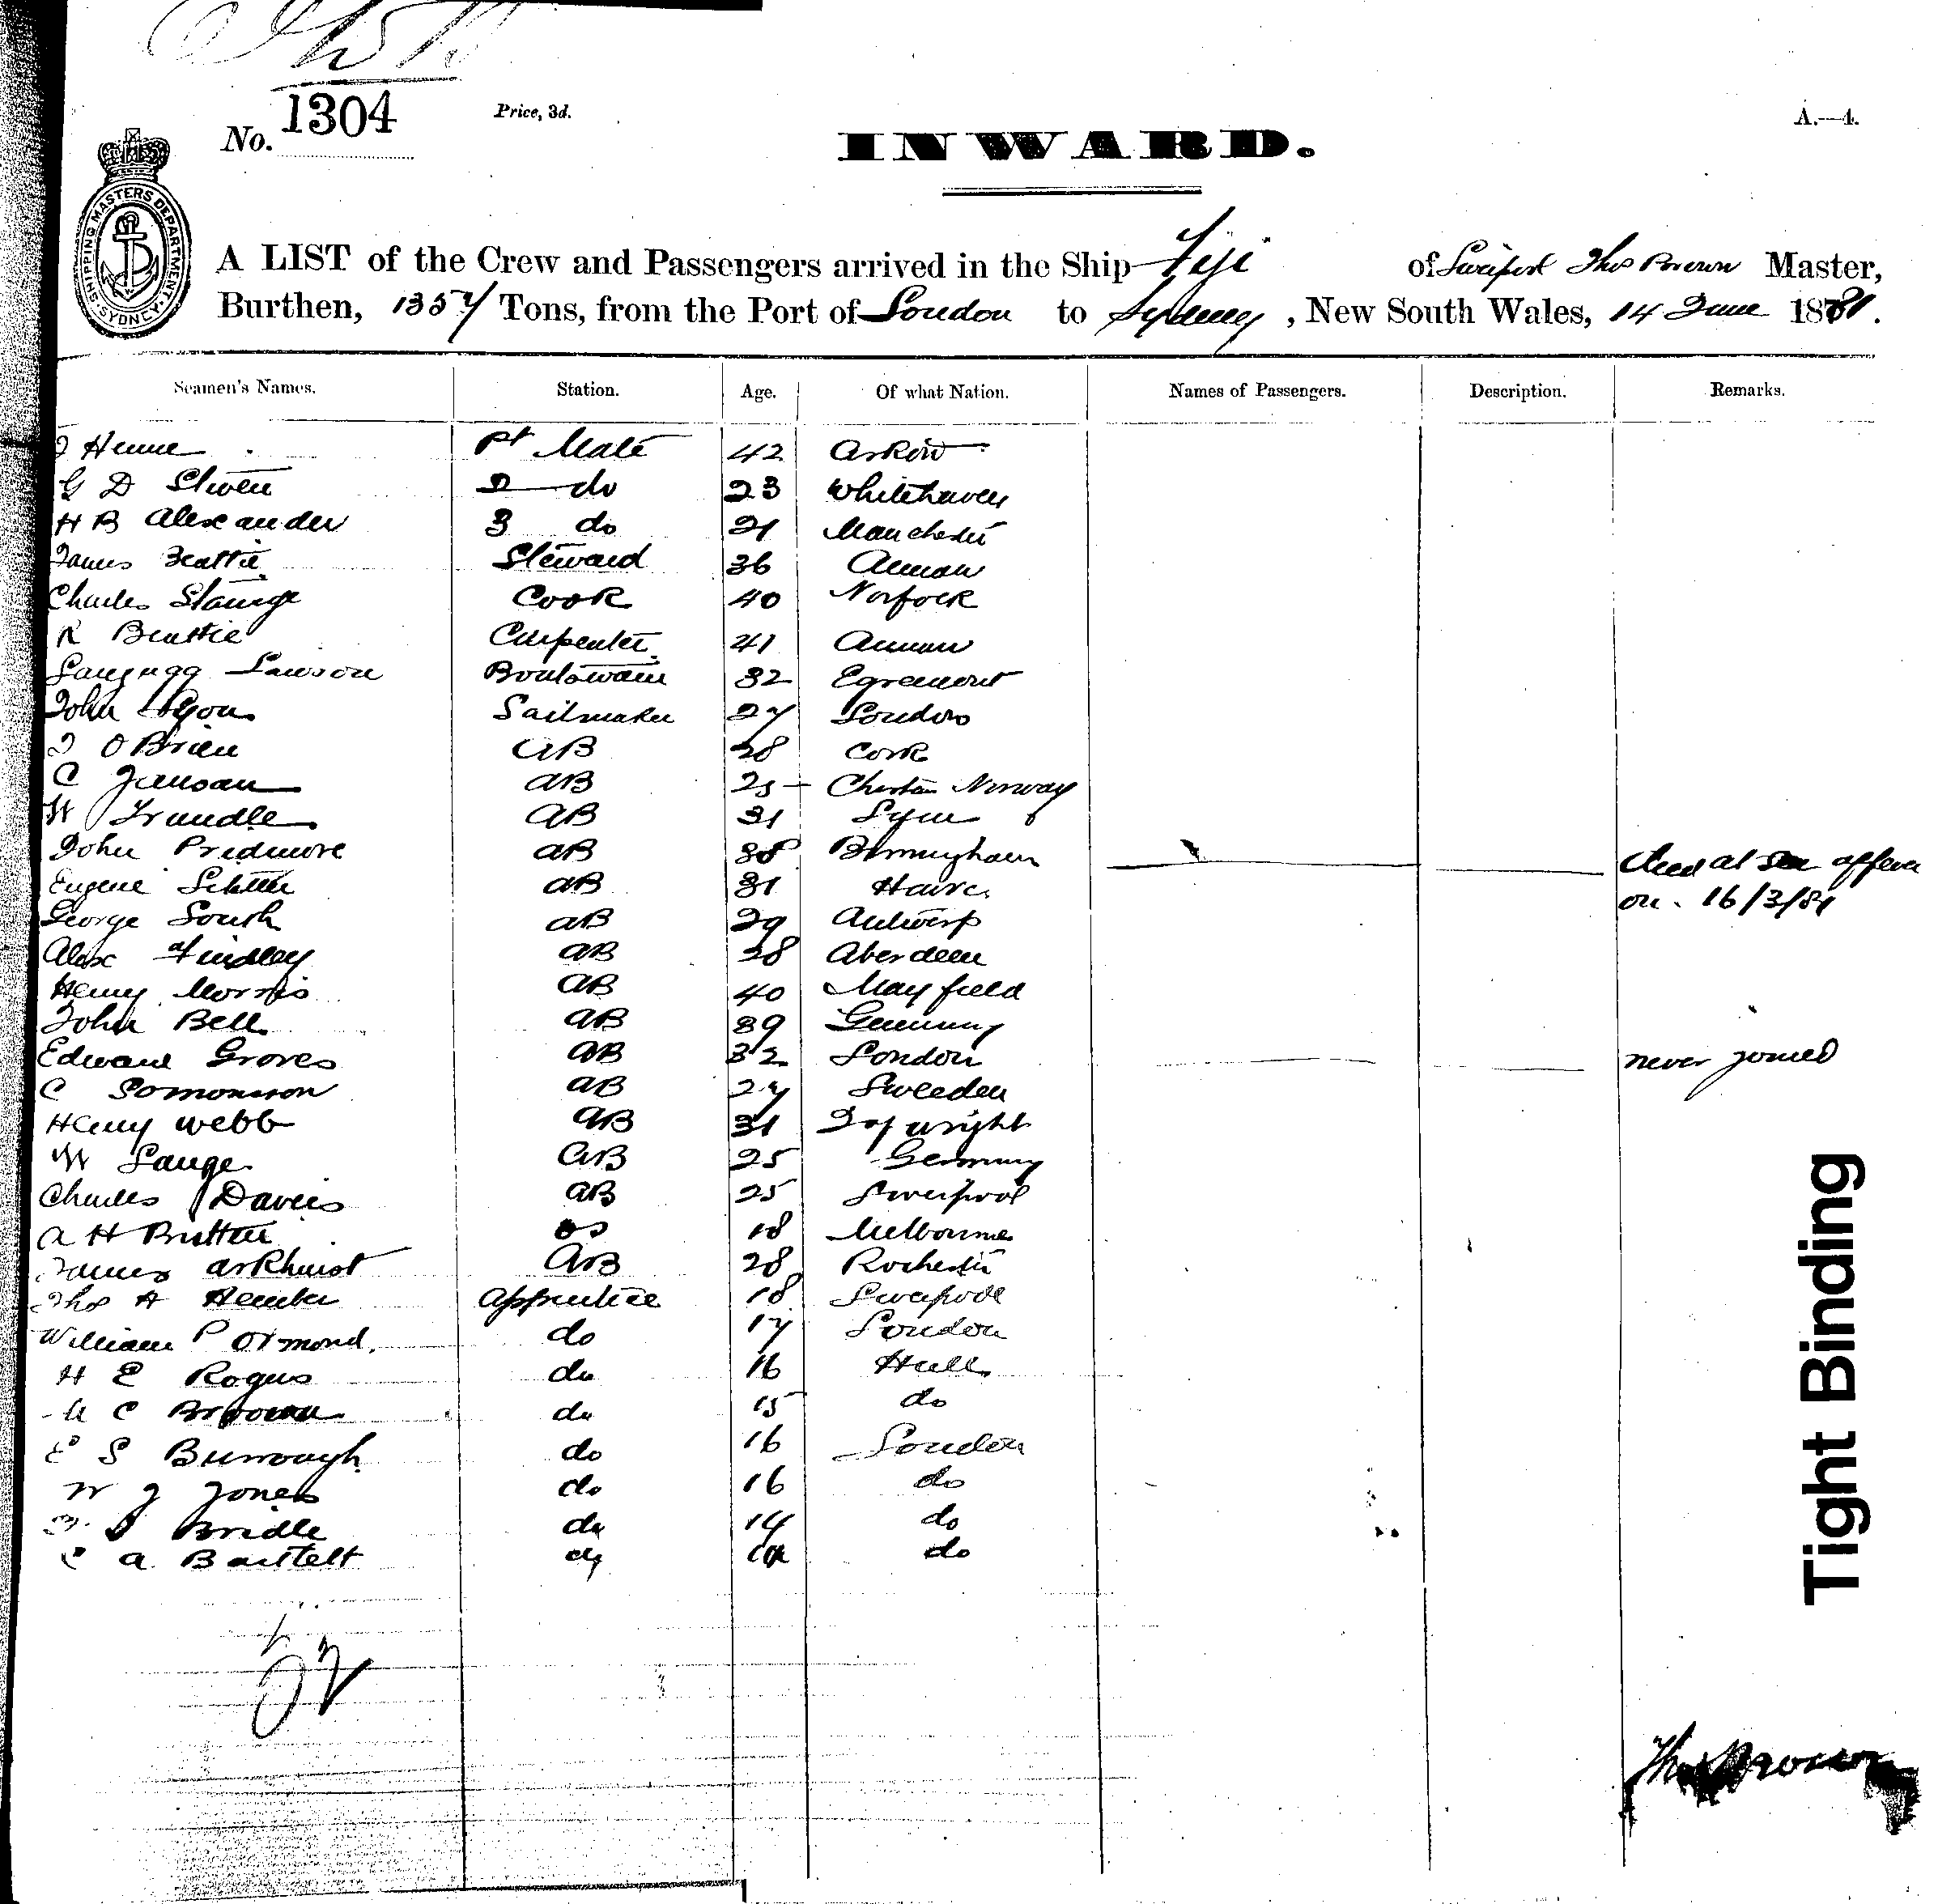 No. 1304
Price, 3d.
A.—4.
INWARD.
SHIPPING MASTERS DEPARTMENT. SYDNEY.
A LIST of the Crew and Passengers arrived in the Ship Fiji of Liverpool Thos Brown Master,
Burthen, 1357 Tons, from the Port of London to Sydney, New South Wales, 14 June 1881.
Seamen's Names. Station. Age. Of what Nation. Names of Passengers. Description. Remarks.
Mate 42
G D 2 do 23 Whitehaven
H B Alexander 3 do 21 Manchester
James Beattie Steward 36 Annan
Charles Cook 40 Norfolk
R Beattie Carpenter 41 Annan
Lawson Boatswain 32 Egremont
John Lyon Sailmaker 27 London
O Brien AB 28 Cork
C Jansan AB 25 Norway
W Trundle AB 31 Lynn
John Pridmore AB 38 Birmingham died at sea
Eugene AB 31 Havre on 16/3/81
George South AB 29 Antwerp
Alex Findley AB 28 Aberdeen
Henry Morris AB 40 Mayfield
John Bell AB 39 Germany
Edward Groves AB 32 London never joined
C AB 27 Sweeden
Henry Webb AB 31 I of wright
W Lange AB 25 Germany
Charles Davies AB 25 Liverpool
A H OS 18 Melbourne
James Arkhurst AB 28 Rochester
Thos A Apprentice 18 Liverpool
William P Ormond. do 17 London
H E Rogers do 16 Hull
C Brown do 15 do
E S Burrough do 16 London
W J Jones do 16 do
Bridle do 14 do
C A Bartelt do do
32
Thos Brown
Tight Binding